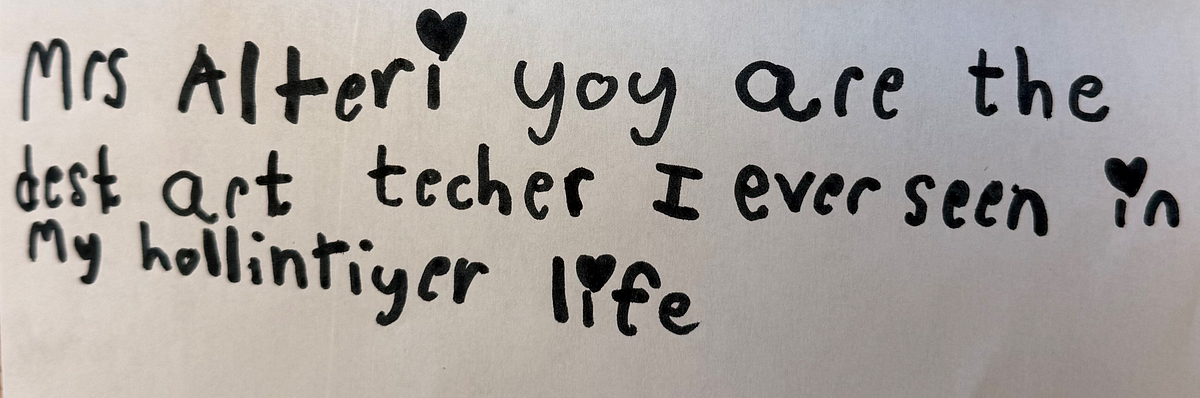 Mrs Alteri yoy are the
dest art techer I ever seen in
My hollintiyer life